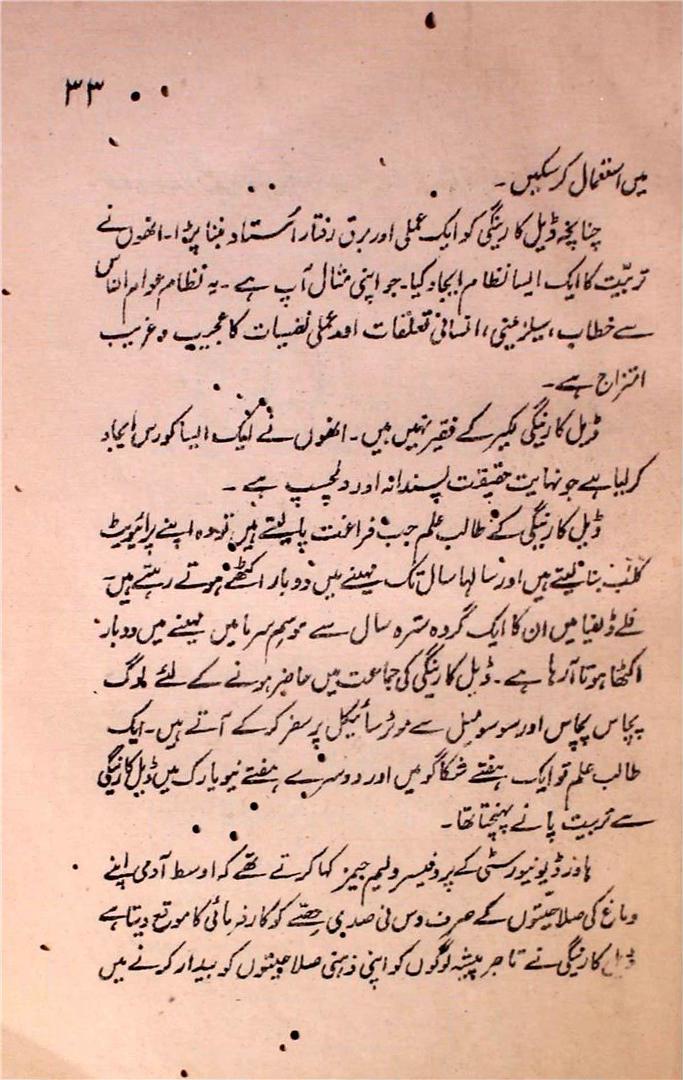 ۳۳
میں استعمال کر سکیں۔
چنانچہ ڈیل کارنیگی کو ایک عملی اور برق رفتار استاد بننا پڑا۔ انھوں نے
تربیّت کا ایک ایسا نظام ایجاد کیا۔ جو اپنی مثال آپ ہے۔ یہ نظام عوام الناس
سے خطاب، سیلزمینی، انسانی تعلّقات اور عملی نفسیات کا عجیب و غریب
امتزاج ہے۔
ڈیل کارنیگی لکیر کے فقیر نہیں ہیں۔ انھوں نے ایک ایسا کورس ایجاد
کر لیا ہے جو نہایت حقیقت پسندانہ اور دلچسپ ہے۔
ڈیل کارنیگی کے طالب علم جب فراغت پا لیتے ہیں تو وہ اپنے پرائیویٹ
کلب بنا لیتے ہیں اور سالہا سال تک مہینے میں دو بار اکٹھے ہوتے رہتے ہیں۔
فلے ڈلفیا میں ان کا ایک گروہ سترہ سال سے موسمِ سرما میں مہینے میں دو بار
اکٹھا ہوتا آ رہا ہے۔ ڈیل کارنیگی کی جماعت میں حاضر ہونے کے لئے لوگ
پچاس پچاس اور سو سو میل سے موٹر سائیکل پر سفر کر کے آتے ہیں۔ ایک
طالب علم تو ایک ہفتے شکاگو میں اور دوسرے ہفتے نیویارک میں ڈیل کارنیگی
سے تربیت پانے پہنچتا تھا۔
ہاورڈ یونیورسٹی کے پروفیسر ولیم جیمز کہا کرتے تھے کہ اوسط آدمی اپنے
دماغ کی صلاحیّتوں کے صرف دس فی صدی حِصّے کو کارفرمائی کا موقع دیتا ہے
ڈیل کارنیگی نے تاجر پیشہ لوگوں کو اپنی ذہنی صلاحیتوں کو بیدار کرنے میں